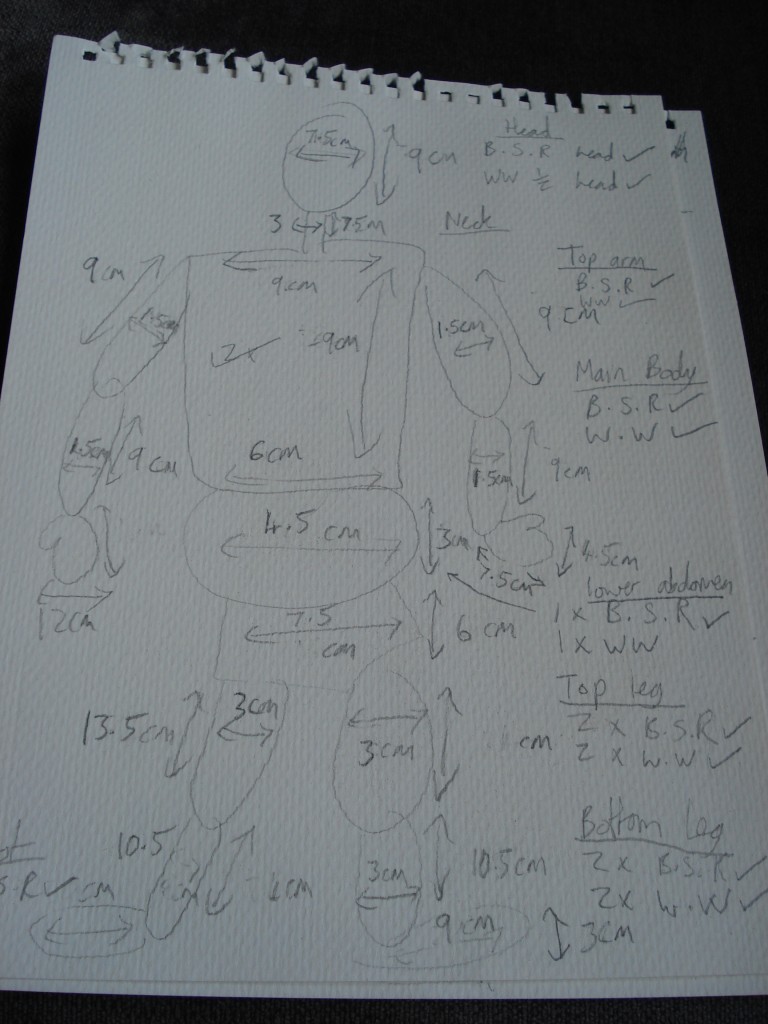 Head
7.5cm
9cm
B.S.R head ✓
WW ½ head ✓
3
Neck
9cm
9cm
Top arm
B.S.R ✓
WW ✓
9cm
1.5cm
2x
9cm
1.5cm
Main Body
B.S.R ✓
W.W ✓
6cm
1.5cm
9cm
1.5cm
9cm
4.5 cm
3cm
4.5cm
7.5cm
lower abdomen
12cm
1 x B.S.R ✓
1 x WW
7.5 cm
6 cm
Top leg
2 x B.S.R ✓
2 x W.W ✓
13.5cm
3cm
3cm
cm
Bottom Leg
2 x B.S.R ✓
2 x W.W ✓
10.5
3cm
10.5cm
S.R ✓
cm
9 cm
3cm